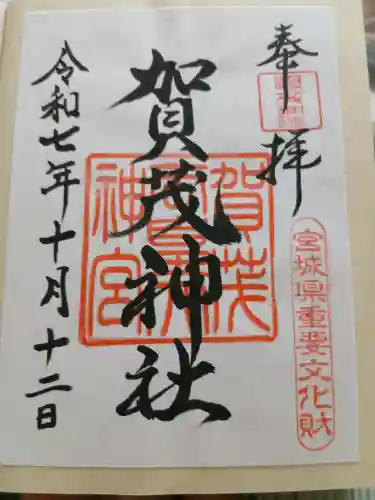 奉拝
賀茂神社
令和七年十月十二日
宮城県重要文化財